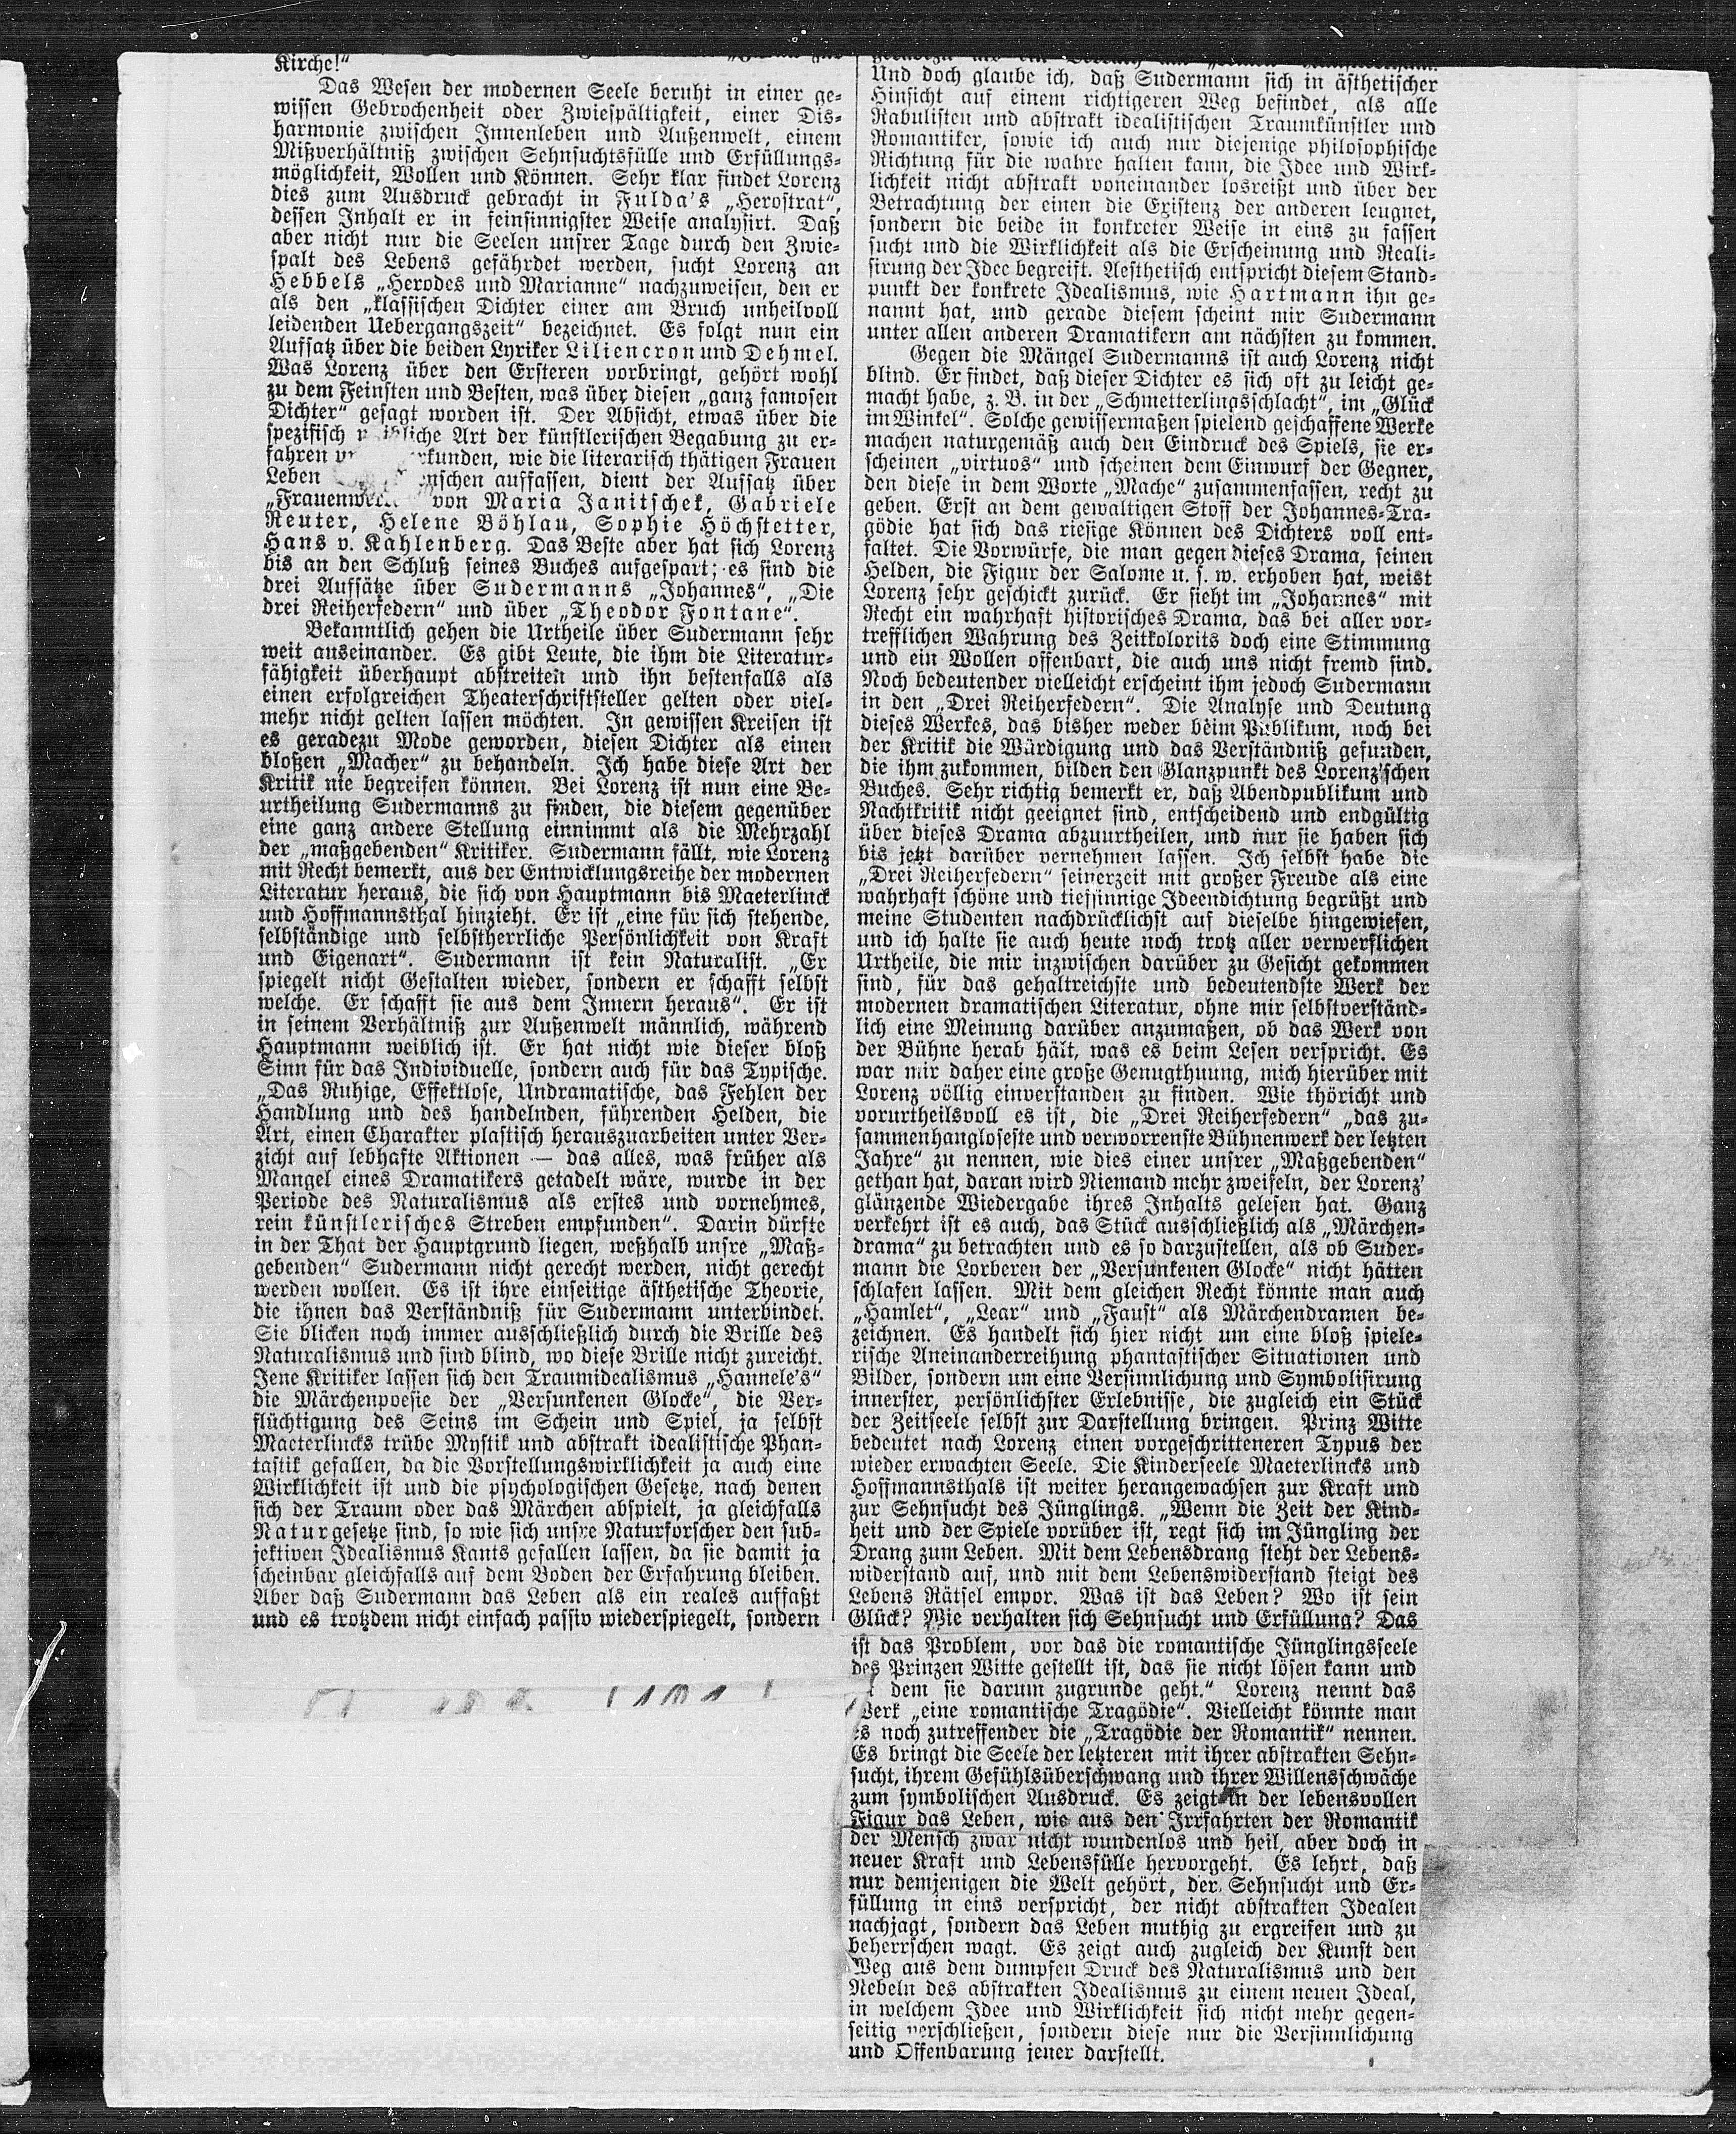 Kirche!“
Das Wesen der modernen Seele beruht in einer ge-
wissen Gebrochenheit oder Zwiespältigkeit, einer Dis-
harmonie zwischen Innenleben und Außenwelt, einem
Mißverhältniß zwischen Sehnsuchtsfülle und Erfüllungs-
möglichkeit, Wollen und Können. Sehr klar findet Lorenz
dies zum Ausdruck gebracht in Fulda's „Herostrat“,
dessen Inhalt er in feinsinnigster Weise analysirt. Daß
aber nicht nur die Seelen unsrer Tage durch den Zwie-
spalt des Lebens gefährdet werden, sucht Lorenz an
Hebbels „Herodes und Marianne“ nachzuweisen, den er
als den „klassischen Dichter einer am Bruch unheilvoll
leidenden Uebergangszeit“ bezeichnet. Es folgt nun ein
Aufsatz über die beiden Lyriker Liliencron und Dehmel.
Was Lorenz über den Ersteren vorbringt, gehört wohl
zu dem Feinsten und Besten, was über diesen „ganz famosen
Dichter“ gesagt worden ist. Der Absicht, etwas über die
spezifisch Art der künstlerischen Begabung zu er-
fahren wie die literarisch thätigen Frauen
Leben auffassen, dient der Aufsatz über
von Maria Janitschek, Gabriele
Reuter, Helene Böhlau, Sophie Höchstetter,
Hans v. Kahlenberg. Das Beste aber hat sich Lorenz
bis an den Schluß seines Buches aufgespart; es sind die
drei Aufsätze über Sudermanns „Johannes“, „Die
drei Reiherfedern“ und über „Theodor Fontane“.
Bekanntlich gehen die Urtheile über Sudermann sehr
weit auseinander. Es gibt Leute, die ihm die Literatur-
fähigkeit überhaupt abstreiten und ihn bestenfalls als
einen erfolgreichen Theaterschriftsteller gelten oder viel-
mehr nicht gelten lassen möchten. In gewissen Kreisen ist
es geradezu Mode geworden, diesen Dichter als einen
bloßen „Macher“ zu behandeln. Ich habe diese Art der
Kritik nie begreifen können. Bei Lorenz ist nun eine Be-
urtheilung Sudermanns zu finden, die diesem gegenüber
eine ganz andere Stellung einnimmt als die Mehrzahl
der „maßgebenden“ Kritiker. Sudermann fällt, wie Lorenz
mit Recht bemerkt, aus der Entwicklungsreihe der modernen
Literatur heraus, die sich von Hauptmann bis Maeterlinck
und Hoffmannsthal hinzieht. Er ist „eine für sich stehende,
selbständige und selbstherrliche Persönlichkeit von Kraft
und Eigenart“. Sudermann ist kein Naturalist. „Er
spiegelt nicht Gestalten wieder, sondern er schafft selbst
welche. Er schafft sie aus dem Innern heraus“. Er ist
in seinem Verhältniß zur Außenwelt männlich, während
Hauptmann weiblich ist. Er hat nicht wie dieser bloß
Sinn für das Individuelle, sondern auch für das Typische.
„Das Ruhige, Effektlose, Undramatische, das Fehlen der
Handlung und des handelnden, führenden Helden, die
Art, einen Charakter plastisch herauszuarbeiten unter Ver-
zicht auf lebhafte Aktionen — das alles, was früher als
Mangel eines Dramatikers getadelt wäre, wurde in der
Periode des Naturalismus als erstes und vornehmes,
rein künstlerisches Streben empfunden“. Darin dürfte
in der That der Hauptgrund liegen, weßhalb unsre „Maß-
gebenden“ Sudermann nicht gerecht werden, nicht gerecht
werden wollen. Es ist ihre einseitige ästhetische Theorie,
die ihnen das Verständniß für Sudermann unterbindet.
Sie blicken noch immer ausschließlich durch die Brille des
Naturalismus und sind blind, wo diese Brille nicht zureicht.
Jene Kritiker lassen sich den Traumidealismus „Hannele's“
die Märchenpoesie der „Versunkenen Glocke“, die Ver-
flüchtigung des Seins im Schein und Spiel, ja selbst
Maeterlincks trübe Mystik und abstrakt idealistische Phan-
tastik gefallen, da die Vorstellungswirklichkeit ja auch eine
Wirklichkeit ist und die psychologischen Gesetze, nach denen
sich der Traum oder das Märchen abspielt, ja gleichfalls
Naturgesetze sind, so wie sich unsre Naturforscher den sub-
jektiven Idealismus Kants gefallen lassen, da sie damit ja
scheinbar gleichfalls auf dem Boden der Erfahrung bleiben.
Aber daß Sudermann das Leben als ein reales auffaßt
und es trotzdem nicht einfach passiv wiederspiegelt, sondern
Und doch glaube ich, daß Sudermann sich in ästhetischer
Hinsicht auf einem richtigeren Weg befindet, als alle
Rabulisten und abstrakt idealistischen Traumkünstler und
Romantiker, sowie ich auch nur diejenige philosophische
Richtung für die wahre halten kann, die Idee und Wirk-
lichkeit nicht abstrakt voneinander losreißt und über der
Betrachtung der einen die Existenz der anderen leugnet,
sondern die beide in konkreter Weise in eins zu fassen
sucht und die Wirklichkeit als die Erscheinung und Reali-
sirung der Idee begreift. Aesthetisch entspricht diesem Stand-
punkt der konkrete Idealismus, wie Hartmann ihn ge-
nannt hat, und gerade diesem scheint mir Sudermann
unter allen anderen Dramatikern am nächsten zu kommen.
Gegen die Mängel Sudermanns ist auch Lorenz nicht
blind. Er findet, daß dieser Dichter es sich oft zu leicht ge-
macht habe, z. B. in der „Schmetterlingsschlacht“, im „Glück
im Winkel“. Solche gewissermaßen spielend geschaffene Werke
machen naturgemäß auch den Eindruck des Spiels, sie er-
scheinen „virtuos“ und scheinen dem Einwurf der Gegner,
den diese in dem Worte „Mache“ zusammenfassen, recht zu
geben. Erst an dem gewaltigen Stoff der Johannes-Tra-
gödie hat sich das riesige Können des Dichters voll ent-
faltet. Die Vorwürfe, die man gegen dieses Drama, seinen
Helden, die Figur der Salome u. s. w. erhoben hat, weist
Lorenz sehr geschickt zurück. Er sieht im „Johannes“ mit
Recht ein wahrhaft historisches Drama, das bei aller vor-
trefflichen Wahrung des Zeitkolorits doch eine Stimmung
und ein Wollen offenbart, die auch uns nicht fremd sind.
Noch bedeutender vielleicht erscheint ihm jedoch Sudermann
in den „Drei Reiherfedern“. Die Analyse und Deutung
dieses Werkes, das bisher weder beim Publikum, noch bei
der Kritik die Würdigung und das Verständniß gefunden,
die ihm zukommen, bilden den Glanzpunkt des Lorenz'schen
Buches. Sehr richtig bemerkt er, daß Abendpublikum und
Nachtkritik nicht geeignet sind, entscheidend und endgültig
über dieses Drama abzuurtheilen, und nur sie haben sich
bis jetzt darüber vernehmen lassen. Ich selbst habe die
„Drei Reiherfedern“ seinerzeit mit großer Freude als eine
wahrhaft schöne und tiefsinnige Ideendichtung begrüßt und
meine Studenten nachdrücklichst auf dieselbe hingewiesen,
und ich halte sie auch heute noch trotz aller verwerflichen
Urtheile, die mir inzwischen darüber zu Gesicht gekommen
sind, für das gehaltreichste und bedeutendste Werk der
modernen dramatischen Literatur, ohne mir selbstverständ-
lich eine Meinung darüber anzumaßen, ob das Werk von
der Bühne herab hält, was es beim Lesen verspricht. Es
war mir daher eine große Genugthuung, mich hierüber mit
Lorenz völlig einverstanden zu finden. Wie thöricht und
vorurtheilsvoll es ist, die „Drei Reiherfedern“ „das zu-
sammenhangloseste und verworrenste Bühnenwerk der letzten
Jahre“ zu nennen, wie dies einer unsrer „Maßgebenden“
gethan hat, daran wird Niemand mehr zweifeln, der Lorenz'
glänzende Wiedergabe ihres Inhalts gelesen hat. Ganz
verkehrt ist es auch, das Stück ausschließlich als „Märchen-
drama“ zu betrachten und es so darzustellen, als ob Suder-
mann die Lorberen der „Versunkenen Glocke“ nicht hätten
schlafen lassen. Mit dem gleichen Recht könnte man auch
„Hamlet“, „Lear“ und „Faust“ als Märchendramen be-
zeichnen. Es handelt sich hier nicht um eine bloß spiele-
rische Aneinanderreihung phantastischer Situationen und
Bilder, sondern um eine Versinnlichung und Symbolisirung
innerster, persönlichster Erlebnisse, die zugleich ein Stück
der Zeitseele selbst zur Darstellung bringen. Prinz Witte
bedeutet nach Lorenz einen vorgeschritteneren Typus der
wieder erwachten Seele. Die Kinderseele Maeterlincks und
Hoffmannsthals ist weiter herangewachsen zur Kraft und
zur Sehnsucht des Jünglings. „Wenn die Zeit der Kind-
heit und der Spiele vorüber ist, regt sich im Jüngling der
Drang zum Leben. Mit dem Lebensdrang steht der Lebens-
widerstand auf, und mit dem Lebenswiderstand steigt des
Lebens Rätsel empor. Was ist das Leben? Wo ist sein
Glück? Wie verhalten sich Sehnsucht und Erfüllung? Das
ist das Problem, vor das die romantische Jünglingsseele
des Prinzen Witte gestellt ist, das sie nicht lösen kann und
dem sie darum zugrunde geht.“ Lorenz nennt das
Werk „eine romantische Tragödie“. Vielleicht könnte man
es noch zutreffender die „Tragödie der Romantik“ nennen.
Es bringt die Seele der letzteren mit ihrer abstrakten Sehn-
sucht, ihrem Gefühlsüberschwang und ihrer Willensschwäche
zum symbolischen Ausdruck. Es zeigt in der lebensvollen
Figur das Leben, wie aus den Irrfahrten der Romantik
der Mensch zwar nicht wundenlos und heil, aber doch in
neuer Kraft und Lebensfülle hervorgeht. Es lehrt, daß
nur demjenigen die Welt gehört, der Sehnsucht und Er-
füllung in eins verspricht, der nicht abstrakten Idealen
nachjagt, sondern das Leben muthig zu ergreifen und zu
beherrschen wagt. Es zeigt auch zugleich der Kunst den
Weg aus dem dumpfen Druck des Naturalismus und den
Nebeln des abstrakten Idealismus zu einem neuen Ideal,
in welchem Idee und Wirklichkeit sich nicht mehr gegen-
seitig verschließen, sondern diese nur die Versinnlichung
und Offenbarung jener darstellt.